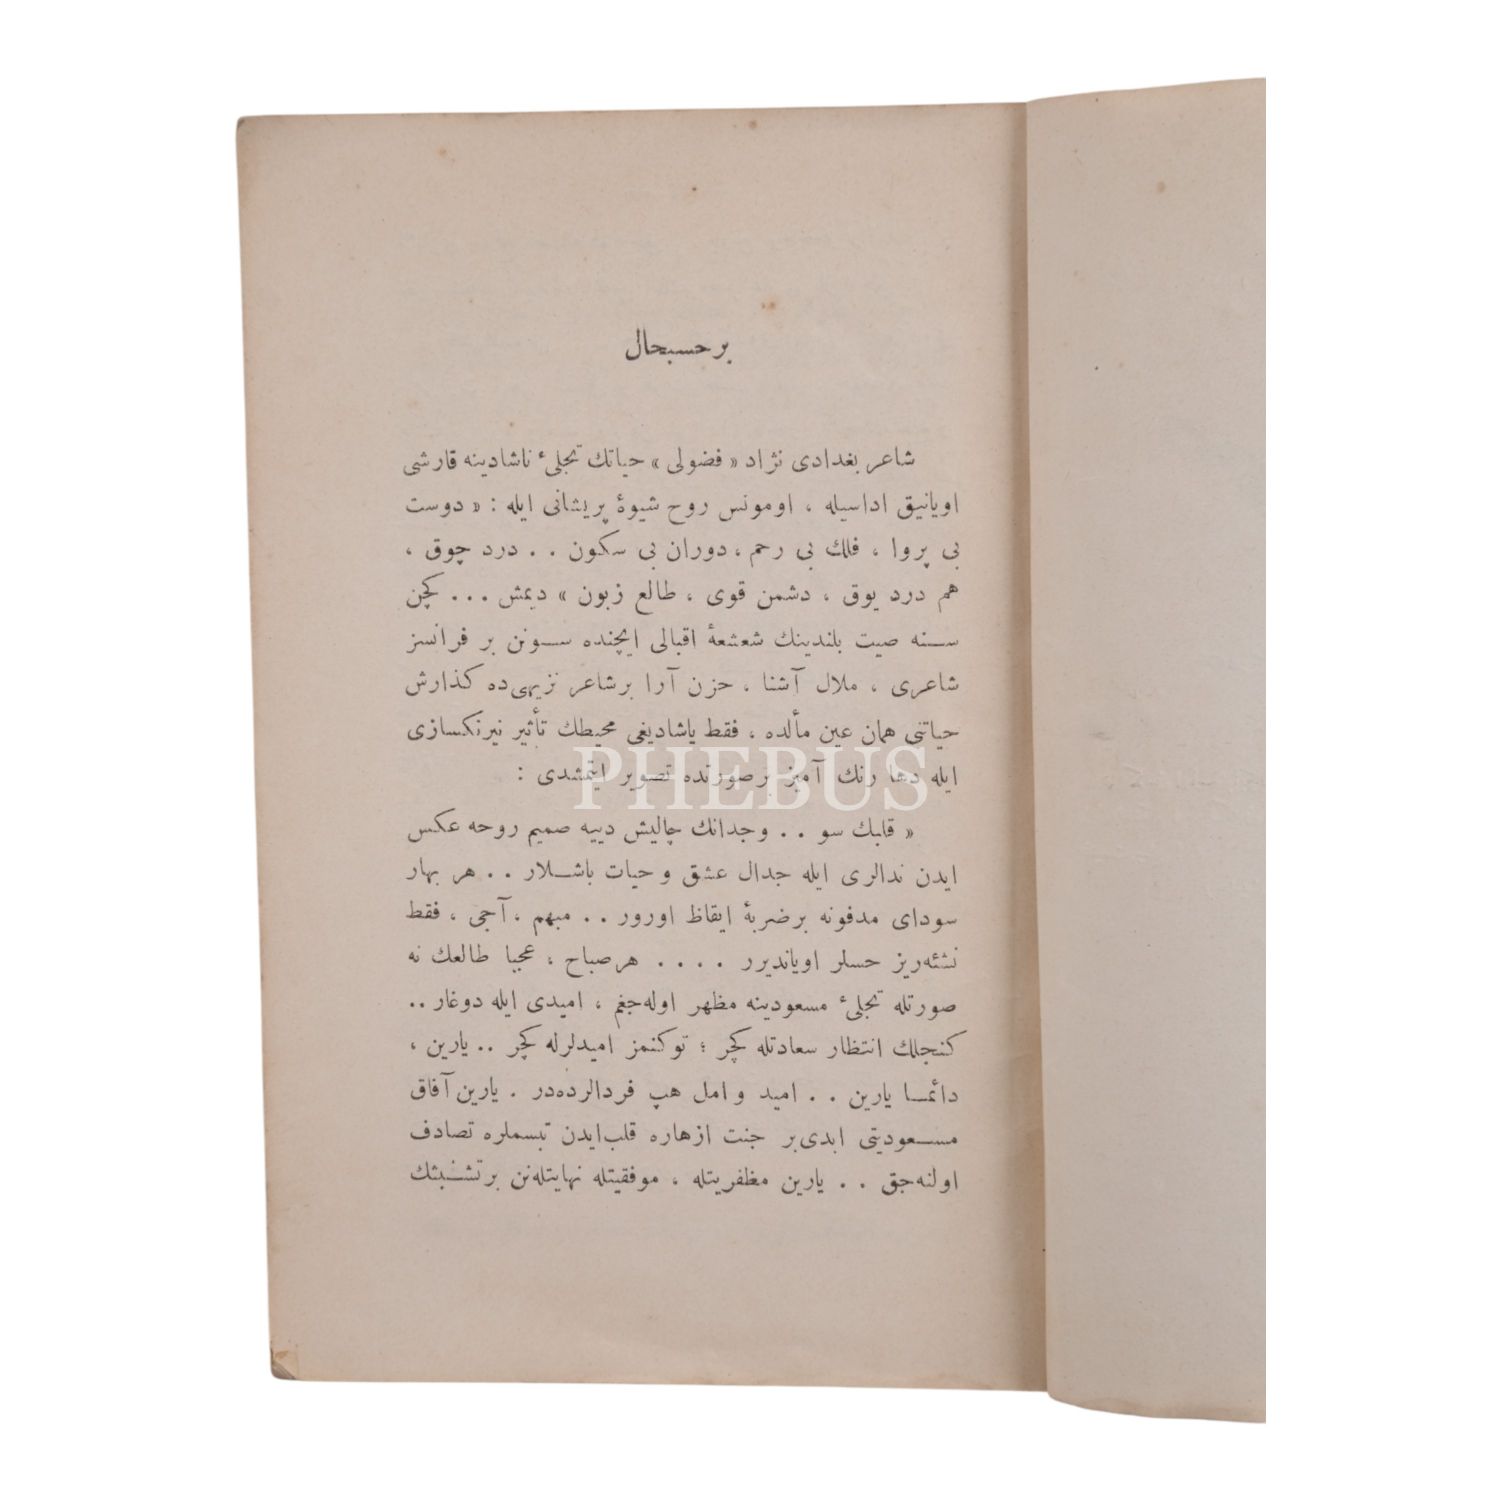 بر حسبحال
شاعر بغدادی نژاد « فضولی » حیاتك تجلیٔ ناشادینه قارشی
اویانیق اداسیله ، اومونس روح شیوۀ پریشانی ایله : « دوست
بی پروا ، فلك بی رحم ، دوران بی سكون . . درد چوق ،
هم درد یوق ، دشمن قوی ، طالع زبون » دیمش ... كچن
سنه صیت بلندینك شعشعۀ اقبالی ایچنده سونن بر فرانسز
شاعری ، ملال آشنا ، حزن آرا برشاعر نزیهی ده كذارش
حیاتنی همان عین مألده ، فقط یاشادیغی محیطك تأثیر نیرنكسازی
ایله دها رنك آمیز برصورتده تصویر ایتمشدی :
PHEBUS
« قلبك سو . . وجدانك چالیش دییه صمیم روحه عكس
ایدن ندالری ایله جدال عشق و حیات باشلار . . هر بهار
سودای مدفونه برضربۀ ایقاظ اورور . . مبهم ، آجی ، فقط
نشئه ریز حسلر اویاندیرر .... هرصباح ، عجبا طالعك نه
صورتله تجلیٔ مسعودینه مظهر اوله جغم ، امیدی ایله دوغار ..
كنجلك انتظار سعادتله كچر ؛ توكنمز امیدلرله كچر .. یارین ،
دائما یارین . . امید و امل هپ فردالرده در . یارین آفاق
مسعودیتی ابدی بر جنت ازهاره قلب ایدن تبسملره تصادف
اولنه جق . . یارین مظفریتله ، موفقیتله نهایتله نن برتشبثك